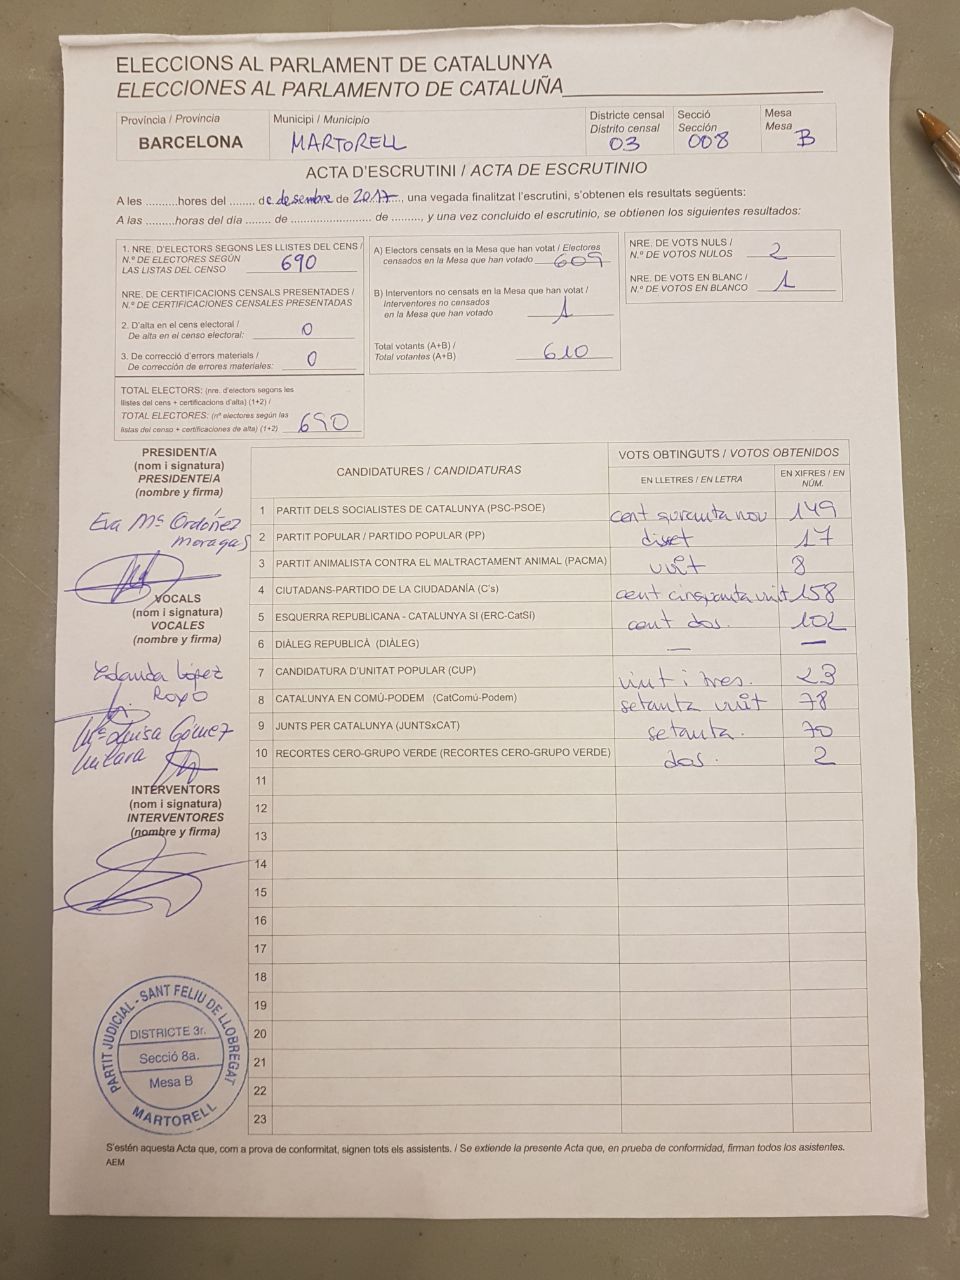 ELECCIONS AL PARLAMENT DE CATALUNYA
ELECCIONES AL PARLAMENTO DE CATALUÑA
Província / Provincia
BARCELONA
Municipi / Municipio
MARTORELL
Districte censal
Distrito censal
03
Secció
Sección
008
Mesa
Mesa
B
ACTA D'ESCRUTINI / ACTA DE ESCRUTINIO
A les .........hores del ....... de desembre de 2017..., una vegada finalitzat l'escrutini, s'obtenen els resultats següents:
A las .........horas del día ....... de ...................... de ........, y una vez concluido el escrutinio, se obtienen los siguientes resultados:
1. NRE. D'ELECTORS SEGONS LES LLISTES DEL CENS /
N.º DE ELECTORES SEGÚN
LAS LISTAS DEL CENSO
690
NRE. DE CERTIFICACIONS CENSALS PRESENTADES /
N.º DE CERTIFICACIONES CENSALES PRESENTADAS
2. D'alta en el cens electoral /
De alta en el censo electoral:
0
3. De correcció d'errors materials /
De corrección de errores materiales:
0
TOTAL ELECTORS: (nre. d'electors segons les
llistes del cens + certificacions d'alta) (1+2) /
TOTAL ELECTORES: (nº electores según las
listas del censo + certificaciones de alta) (1+2)
690
A) Electors censats en la Mesa que han votat / Electores
censados en la Mesa que han votado
609
B) Interventors no censats en la Mesa que han votat /
Interventores no censados
en la Mesa que han votado
1
Total votants (A+B) /
Total votantes (A+B)
610
NRE. DE VOTS NULS /
N.º DE VOTOS NULOS
2
NRE. DE VOTS EN BLANC /
N.º DE VOTOS EN BLANCO
1
PRESIDENT/A
(nom i signatura)
PRESIDENTE/A
(nombre y firma)
Eva Mª Ordóñez
Moragas
VOCALS
(nom i signatura)
VOCALES
(nombre y firma)
Yolanda López
Royo
Mª Luisa Gómez
INTERVENTORS
(nom i signatura)
INTERVENTORES
(nombre y firma)
CANDIDATURES / CANDIDATURAS
VOTS OBTINGUTS / VOTOS OBTENIDOS
EN LLETRES / EN LETRA
EN XIFRES / EN
NÚM.
1 PARTIT DELS SOCIALISTES DE CATALUNYA (PSC-PSOE) cent quranta nou 149
2 PARTIT POPULAR / PARTIDO POPULAR (PP) disset 17
3 PARTIT ANIMALISTA CONTRA EL MALTRACTAMENT ANIMAL (PACMA) vuit 8
4 CIUTADANS-PARTIDO DE LA CIUDADANÍA (C's) cent cinquanta vuit 158
5 ESQUERRA REPUBLICANA - CATALUNYA SÍ (ERC-CatSÍ) cent dos. 102
6 DIÀLEG REPUBLICÀ (DIÀLEG) — —
7 CANDIDATURA D'UNITAT POPULAR (CUP) vint i tres. 23
8 CATALUNYA EN COMÚ-PODEM (CatComú-Podem) setanta vuit 78
9 JUNTS PER CATALUNYA (JUNTSxCAT) setanta. 70
10 RECORTES CERO-GRUPO VERDE (RECORTES CERO-GRUPO VERDE) dos. 2
11
12
13
14
15
16
17
18
19
20
21
22
23
PARTIT JUDICIAL - SANT FELIU DE LLOBREGAT
DISTRICTE 3r.
Secció 8a.
Mesa B
MARTORELL
S'estén aquesta Acta que, com a prova de conformitat, signen tots els assistents. / Se extiende la presente Acta que, en prueba de conformidad, firman todos los asistentes.
AEM